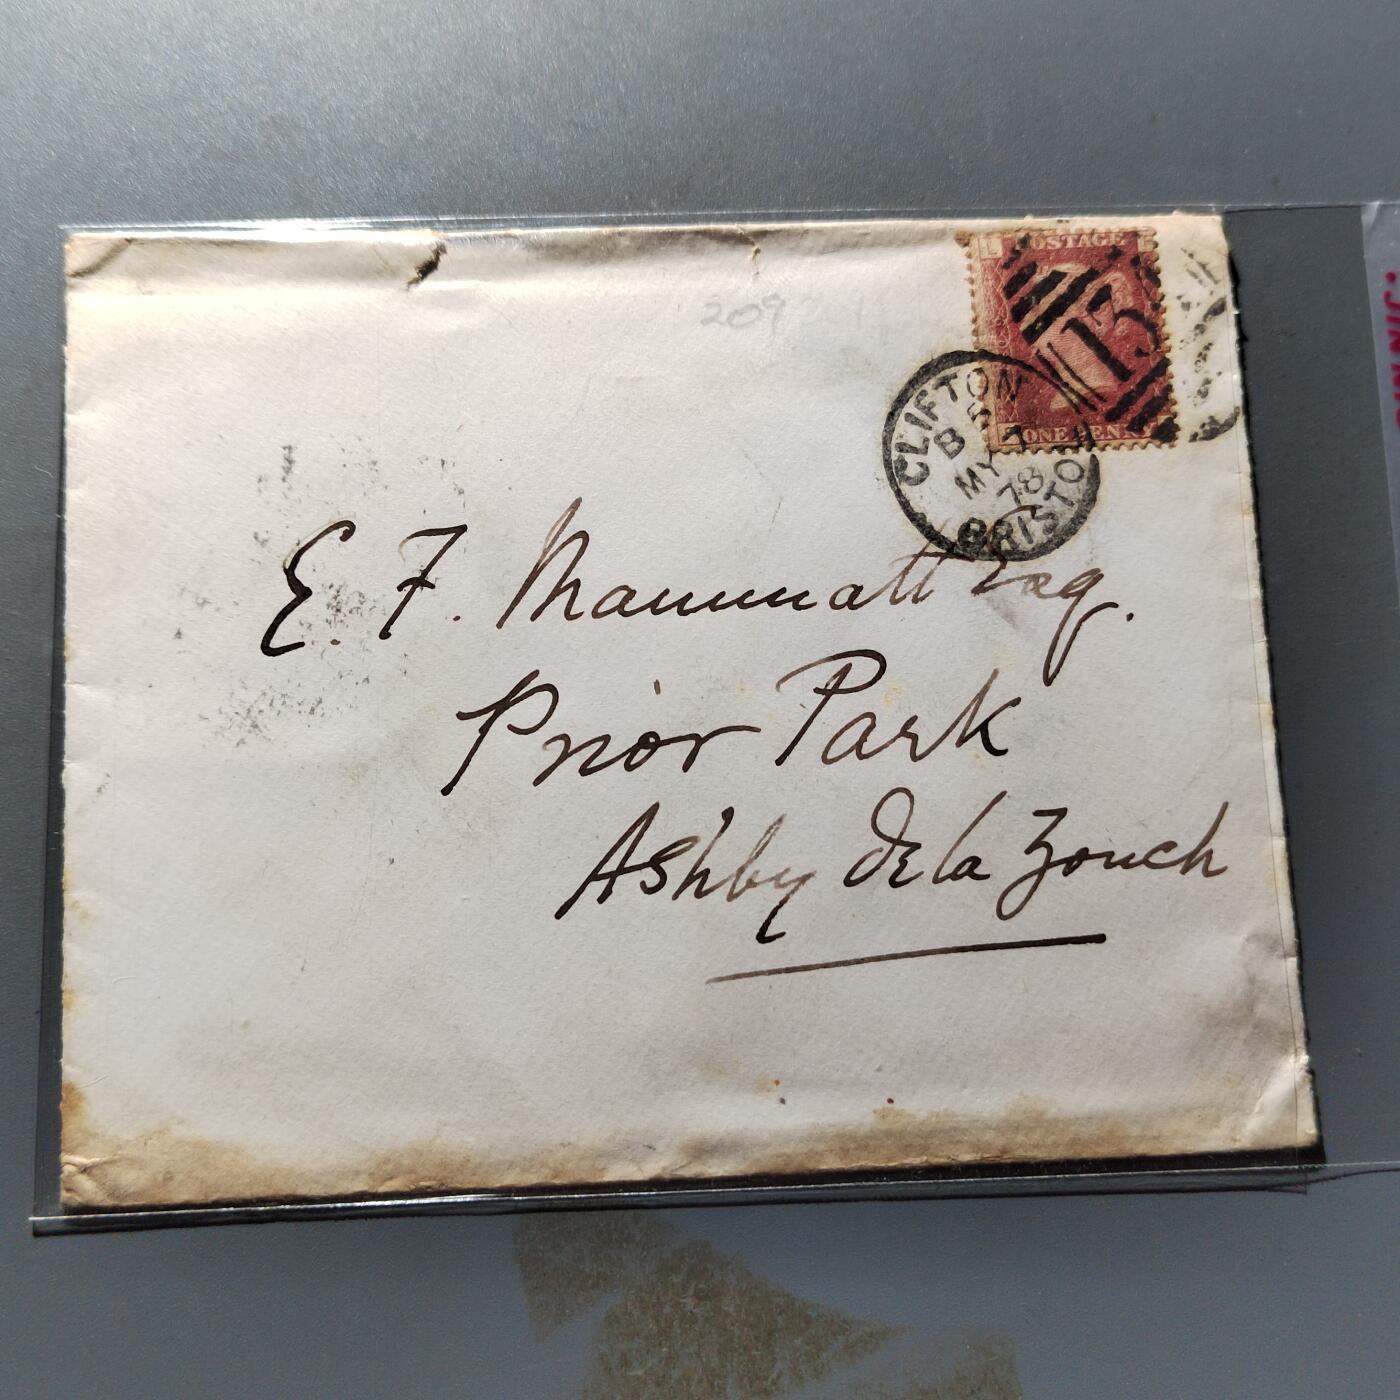 209
POSTAGE
L
13
ONE PENNY
CLIFTON
B
MY 7
78
BRISTOL
E. F. Mammatt Esq.
Prior Park
Ashby de la Zouch